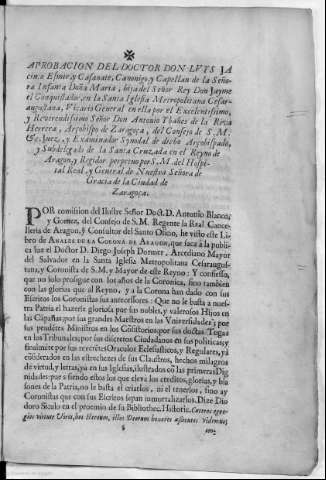 APROBACION DEL DOCTOR DON LUYS JA
cinto Esmir, y Casanate, Canonigo, y Capellan de la Seño-
ra Infanta Doña Maria, hija del Señor Rey Don Jayme
el Conquistador, en la Santa Iglesia Metropolitana Cesar-
augustana, Vicario General en ella por el Excelentissimo,
y Reverendissimo Señor Don Antonio Ybañez de la Riva
Herrera, Arçobispo de Zaragoça, del Consejo de S. M.
&c. Juez, y Examinador Synodal de dicho Arçobispado,
y Subdelegado de la Santa Cruzada en el Reyno de
Aragon, y Regidor perpetuo por S. M. del Hospi-
tal Real, y General de Nuestra Señora de
Gracia de la Ciudad de
Zaragoça.
POR remission del Ilustre Señor Doct. D. Antonio Blanco,
y Gomez, del Consejo de S. M. Regente la Real Cance-
lleria de Aragon, y Consultor del Santo Oficio, he visto este Li-
bro de ANALES DE LA CORONA DE ARAGON, que saca à la publi-
ca luz el Doctor D. Diego Joseph Dormer, Arcediano Mayor
del Salvador en la Santa Iglesia Metropolitana Cesaraugus-
tana, y Coronista de S. M. y Mayor de este Reyno: Y confiesso,
que no solo prosigue con los años de la Coronica, sino tambien
con las glorias que al Reyno, y a la Corona han dado con sus
Escritos los Coronistas sus antecessores: Que no le basta a nues-
tra Patria el hazerse gloriosa por sus nobles, y valerosos Hijos en
las Cápañas; por sus grandes Maestros en las Universidades; por
sus prudétes Ministros en los Cósistorios; por sus doctas Togas
en los Tribunales; por sus discretos Ciudadanos en sus politicas; y
finalmente por sus reveretes Oraculos Eclesiasticos, y Regulares, yà
cósiderados en las estrecheces de sus Claustros, hechos milagros
de virtud, y letras, yà en sus Iglesias, ilustrados có las primeras Dig
nidades: par a siendo estos los que eleva los creditos, glorias, y bla
sones de la Patria, no le basta el criarlos, ni el tenerlos, sino ay
Coronistas que con sus Escritos sepan inmortalizarlos. Dize Dio
doro Siculo en el proemio de su Bibliothec. Historic. Cæteros egre-
gios virtute Viros, hos Heroum, illos Deorum honores assecutos videmus,